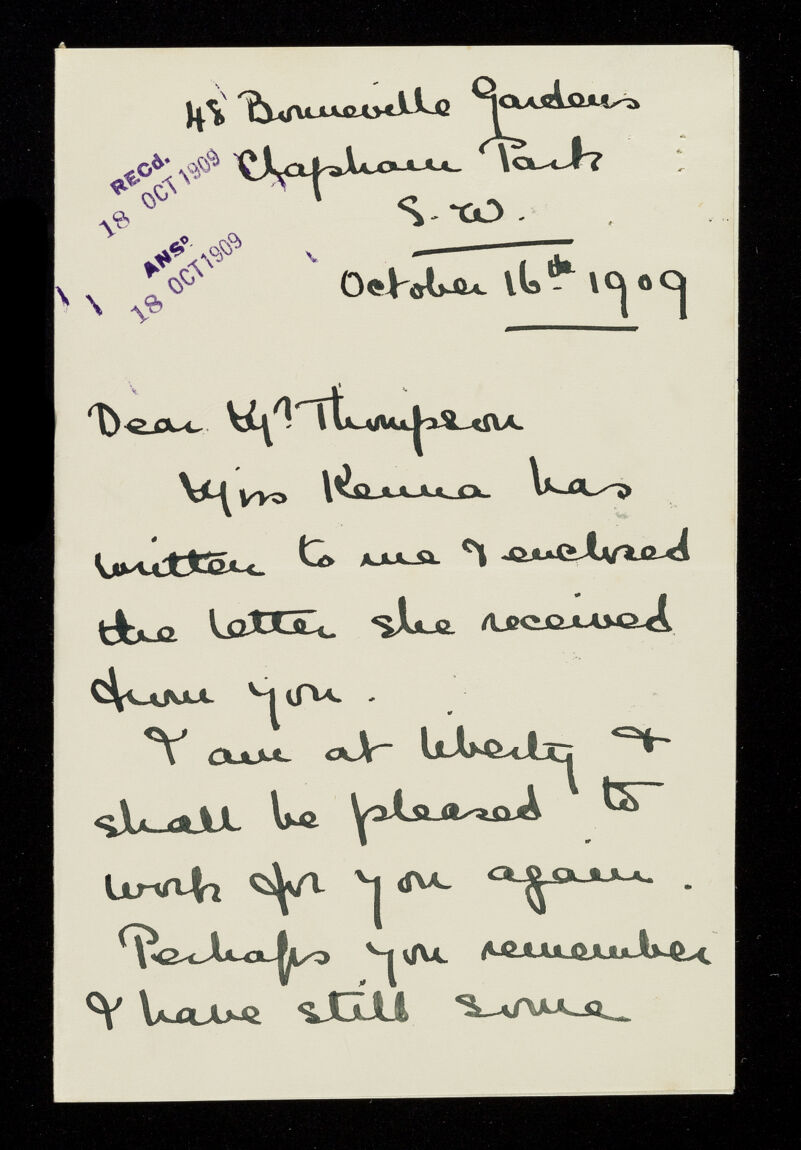 48 Bonneville Gardens
Clapham Park
S. W.
RECd.
18 OCT 1909
ANSD
18 OCT 1909
October 16th 1909
Dear Mr Thompson
Miss Kenna has
written to me & enclosed
the letter she received
from you.
I am at liberty &
shall be pleased to
work for you again.
Perhaps you remember
I have still some